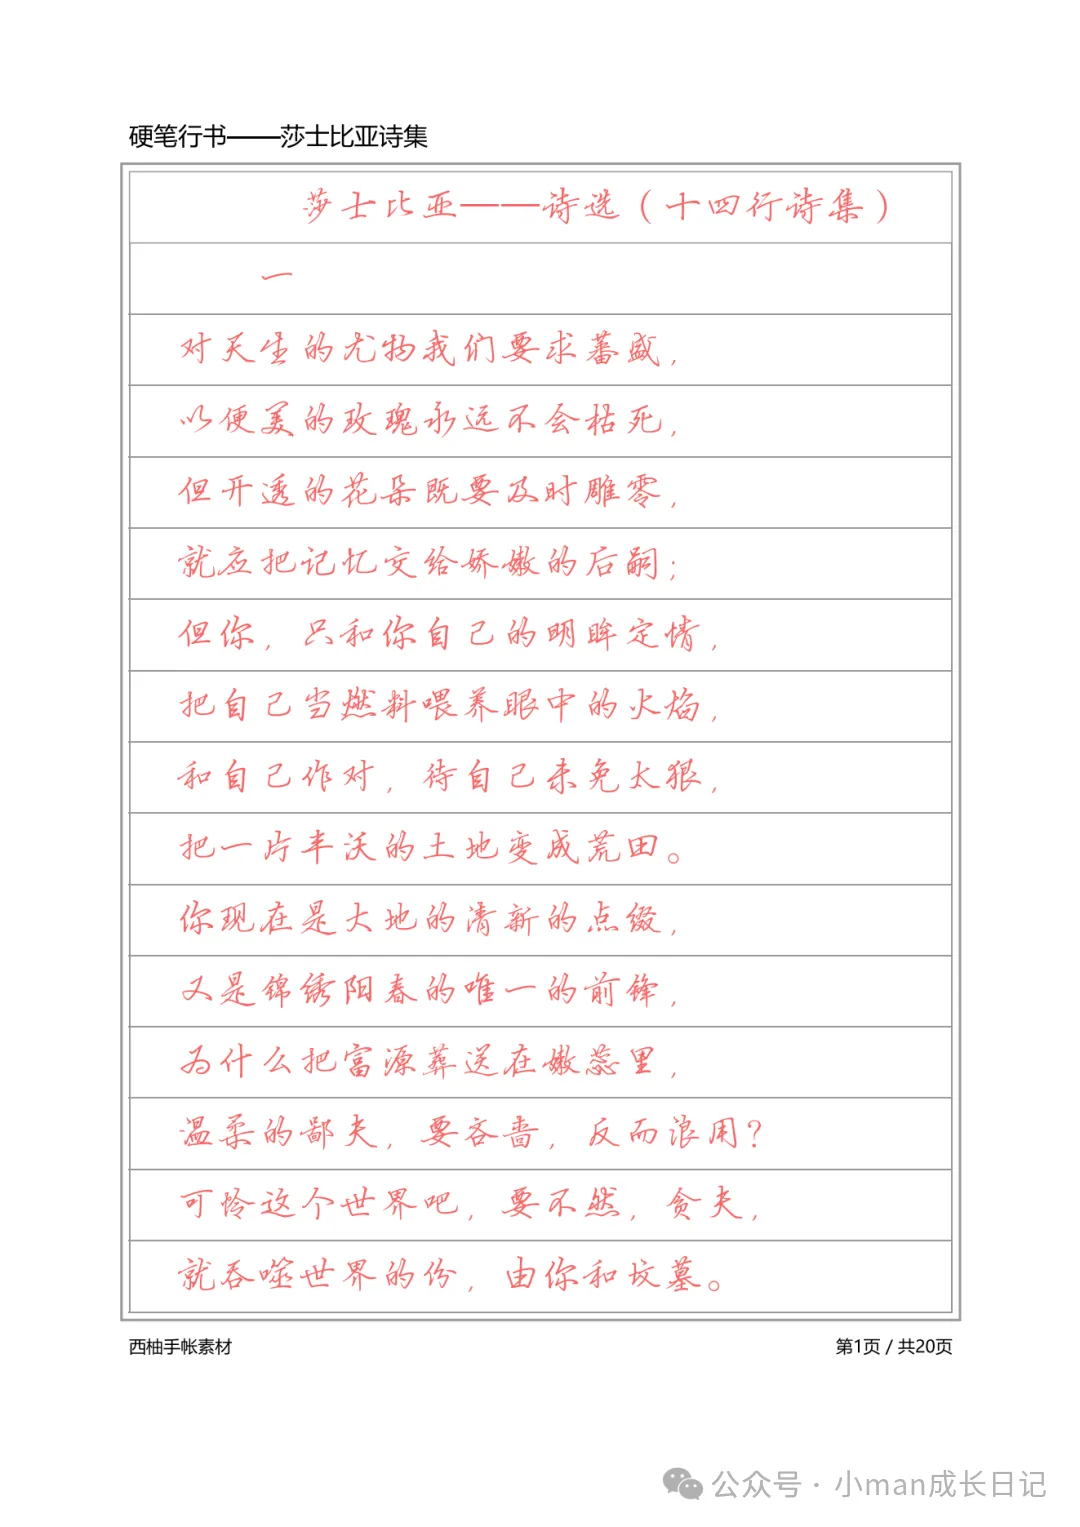 硬笔行书——莎士比亚诗集
莎士比亚——诗选（十四行诗集）
一
对天生的尤物我们要求蕃盛，
以便美的玫瑰永远不会枯死，
但开透的花朵既要及时雕零，
就应把记忆交给娇嫩的后嗣；
但你，只和你自己的明眸定情，
把自己当燃料喂养眼中的火焰，
和自己作对，待自己未免太狠，
把一片丰沃的土地变成荒田。
你现在是大地的清新的点缀，
又是锦绣阳春的唯一的前锋，
为什么把富源葬送在嫩蕊里，
温柔的鄙夫，要吝啬，反而浪用？
可怜这个世界吧，要不然，贪夫，
就吞噬世界的份，由你和坟墓。
西柚手帐素材
第1页 / 共20页
公众号 · 小man成长日记